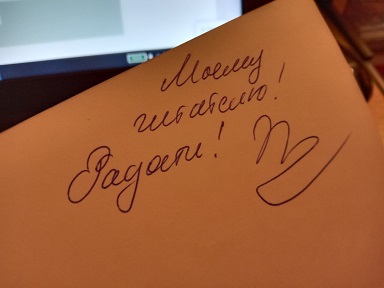 Моему
читателю!
Радости!